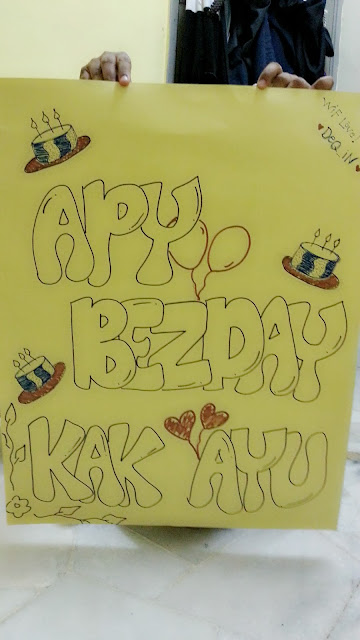 Wif Love:
DeQ_iN
APY
BEZDAY
KAK AYU